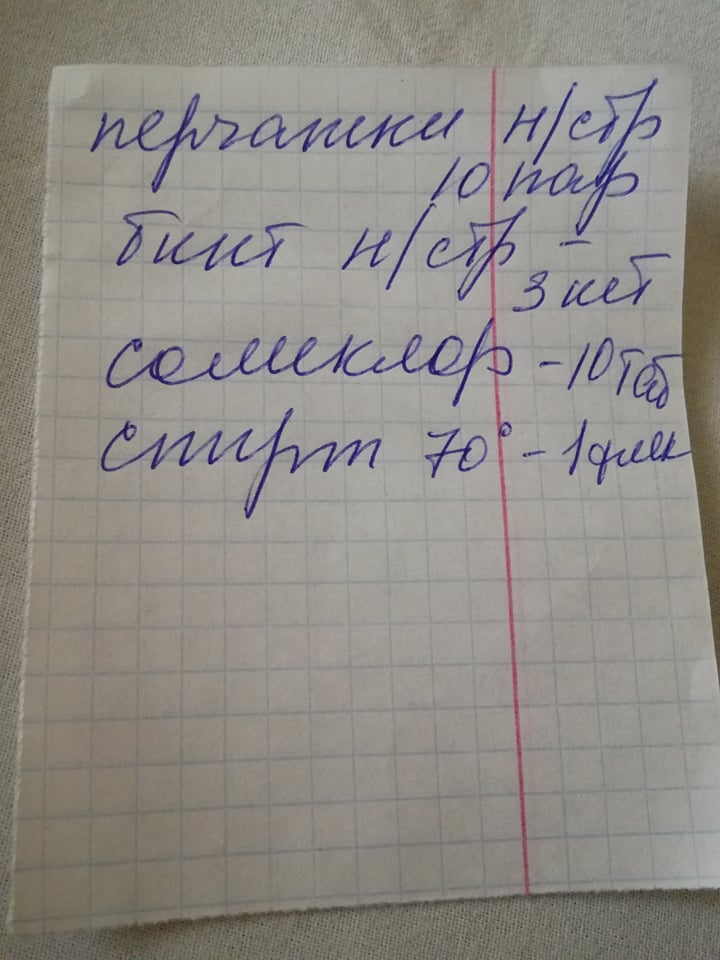 перчатки н/стр
10 пар
бинт н/стр -
3 шт
соликлор - 10 таб
спирт 70° - 1 флак